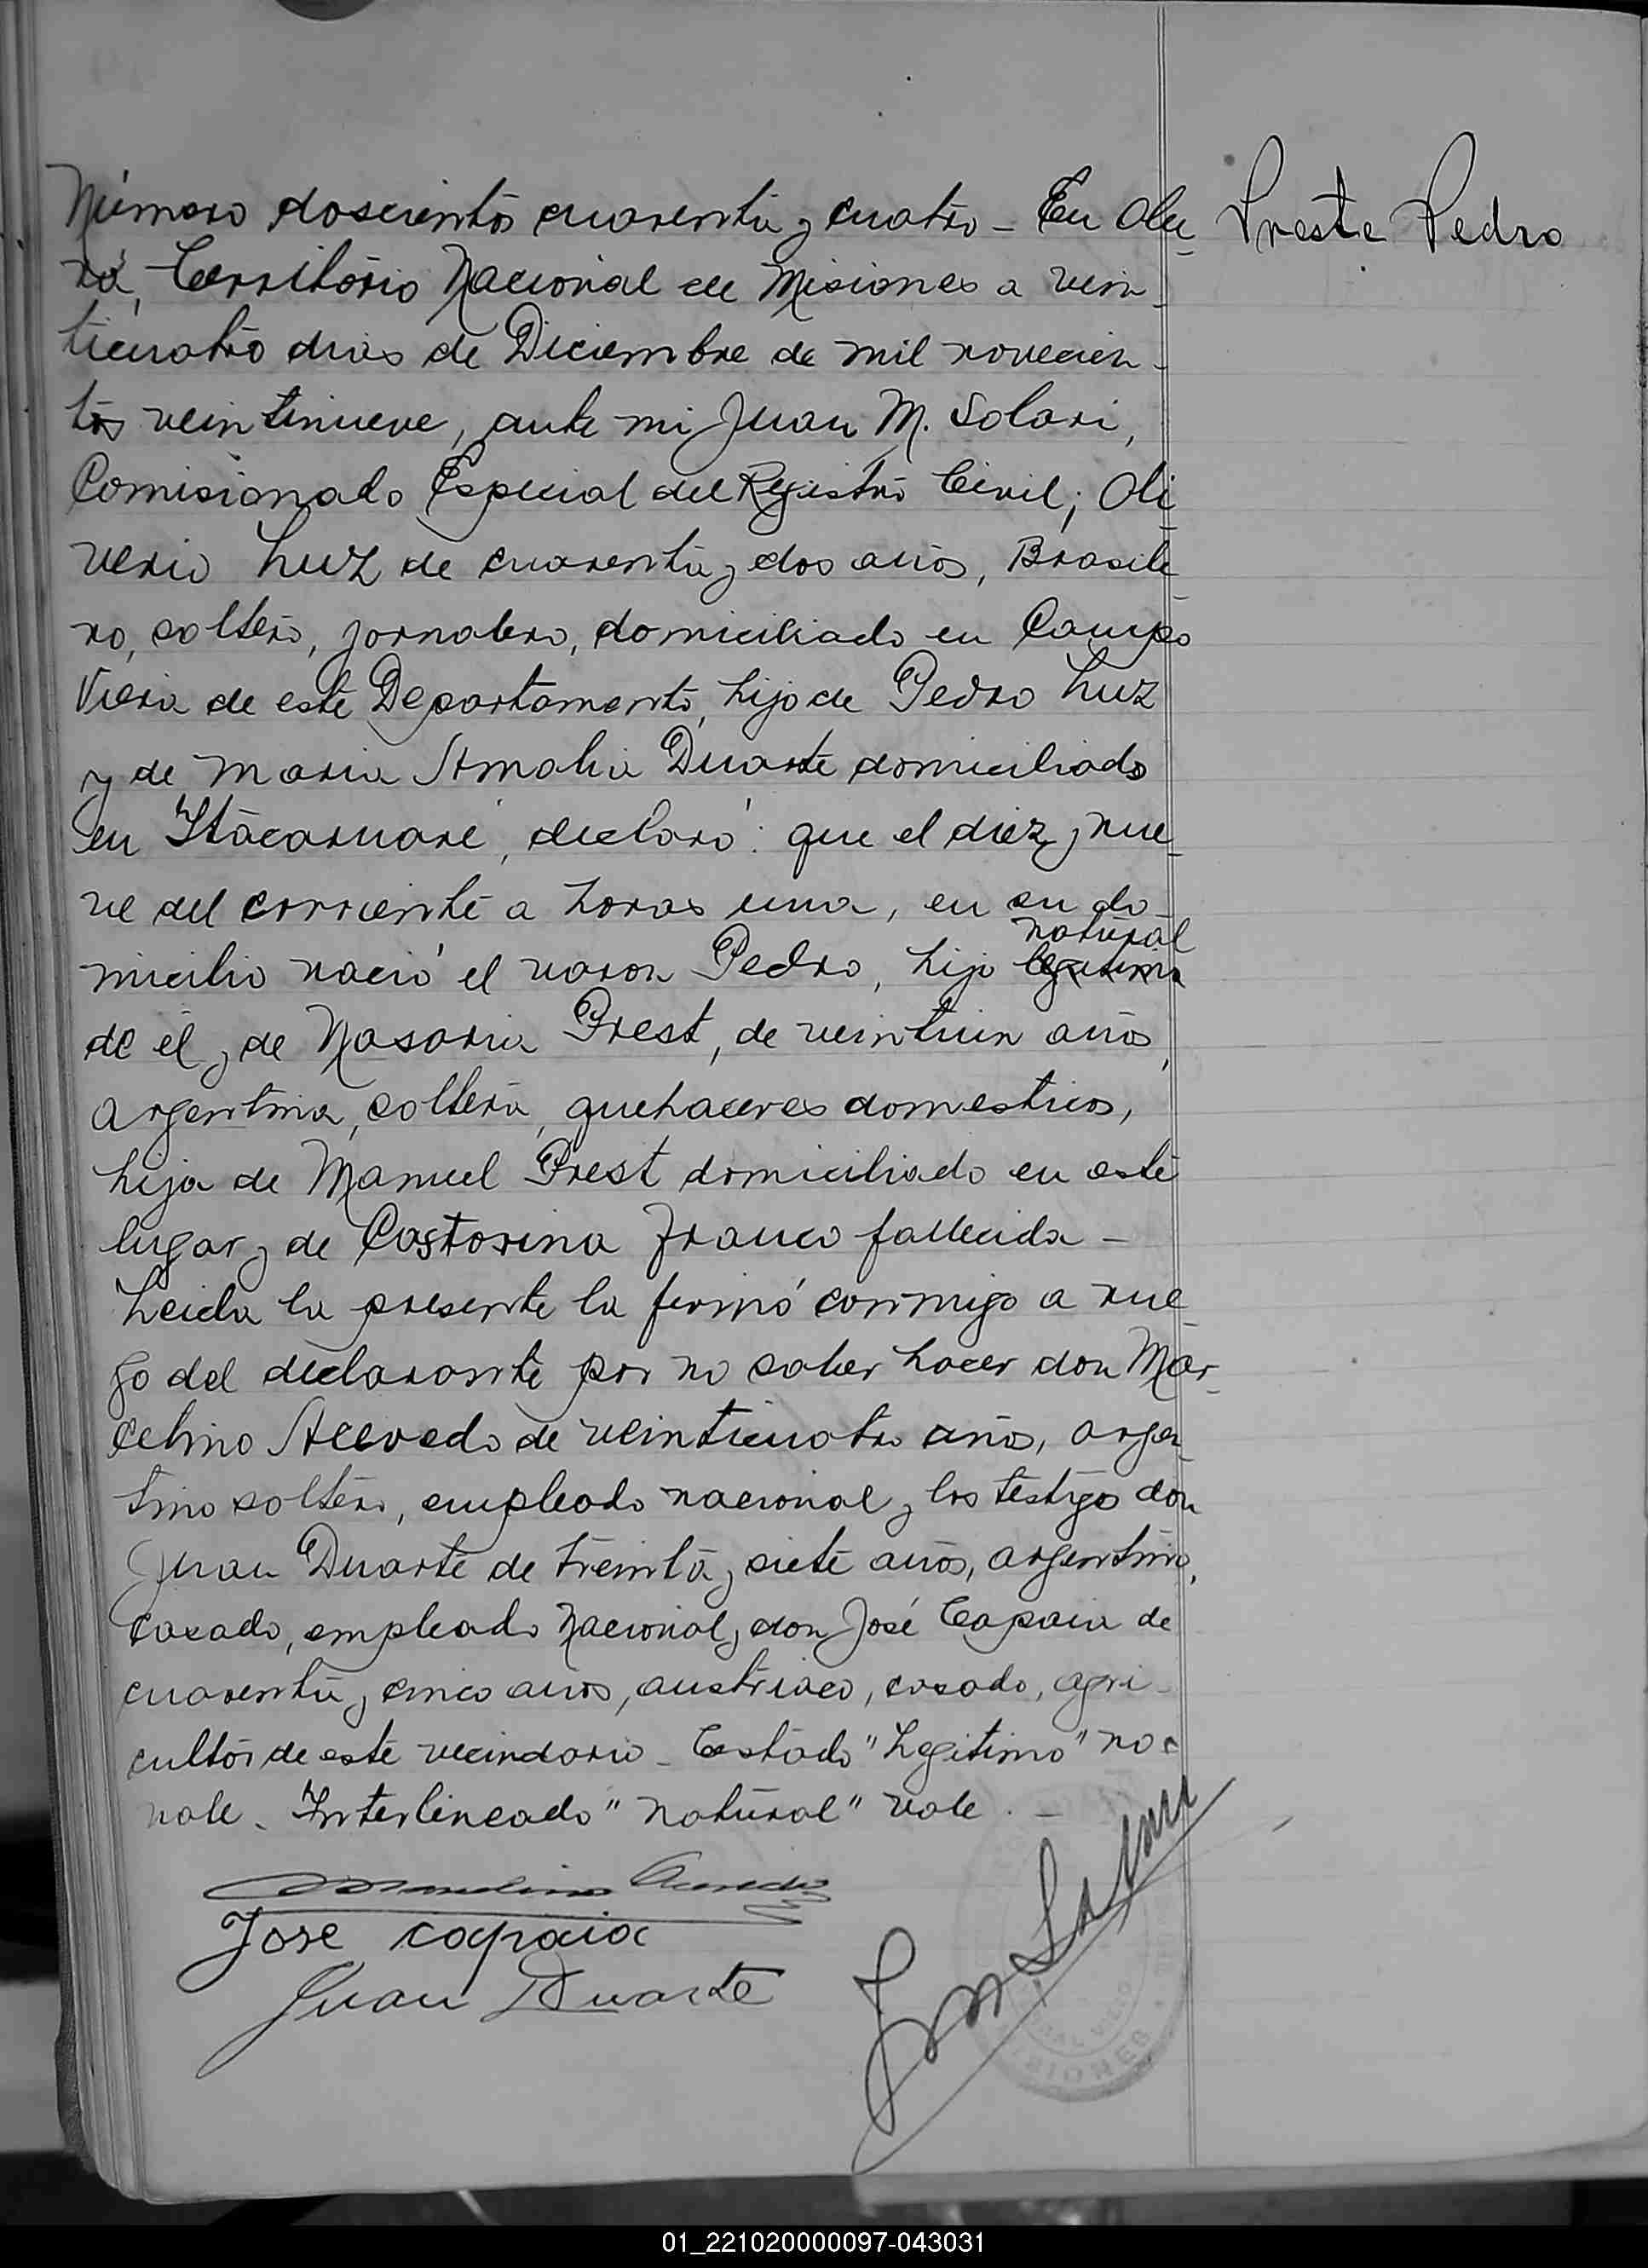 Número doscientos cuarenta y cuatro - En Obe-
rá, Territorio Nacional de Misiones a vein-
ticuatro dias de Diciembre de mil novecien-
tos veintinueve, ante mi Juan M. Solari,
Comisionado Especial del Registro Civil; Oli-
verio Luz de cuarenta y dos años, Brasile-
ño, soltero, jornalero, domiciliado en Campo
Viera de este Departamento, hijo de Pedro Luz
y de Maria Amalia Duarte domiciliado
en Itacaruaré, declaró: que el diez y nue-
ve del corriente a horas una, en su do-
natural
micilio nació el varon Pedro, hijo legitimo
de él y de Nasaria Prest, de veintiun años,
argentina, soltera, quehaceres domesticos,
hija de Manuel Prest domiciliado en este
lugar y de Castorina Franco fallecida -
Leida la presente la firmó conmigo a rue-
go del declarante por no saber hacer don Mar-
celino Acevedo de veinticuatro años, argen-
tino soltero, empleado nacional y los testigos don
Juan Duarte de treinta y siete años, argentino,
casado, empleado Nacional y don José Capaia de
cuarenta y cinco años, austriaco, casado, agri-
cultor de este vecindario - Testado "Legitimo" no
vale. Interlineado "natural" vale. -
Marcelino Acevedo
Jose capaia
Juan Duarte
J M Solari
MISIONES
Preste Pedro
01_221020000097-043031